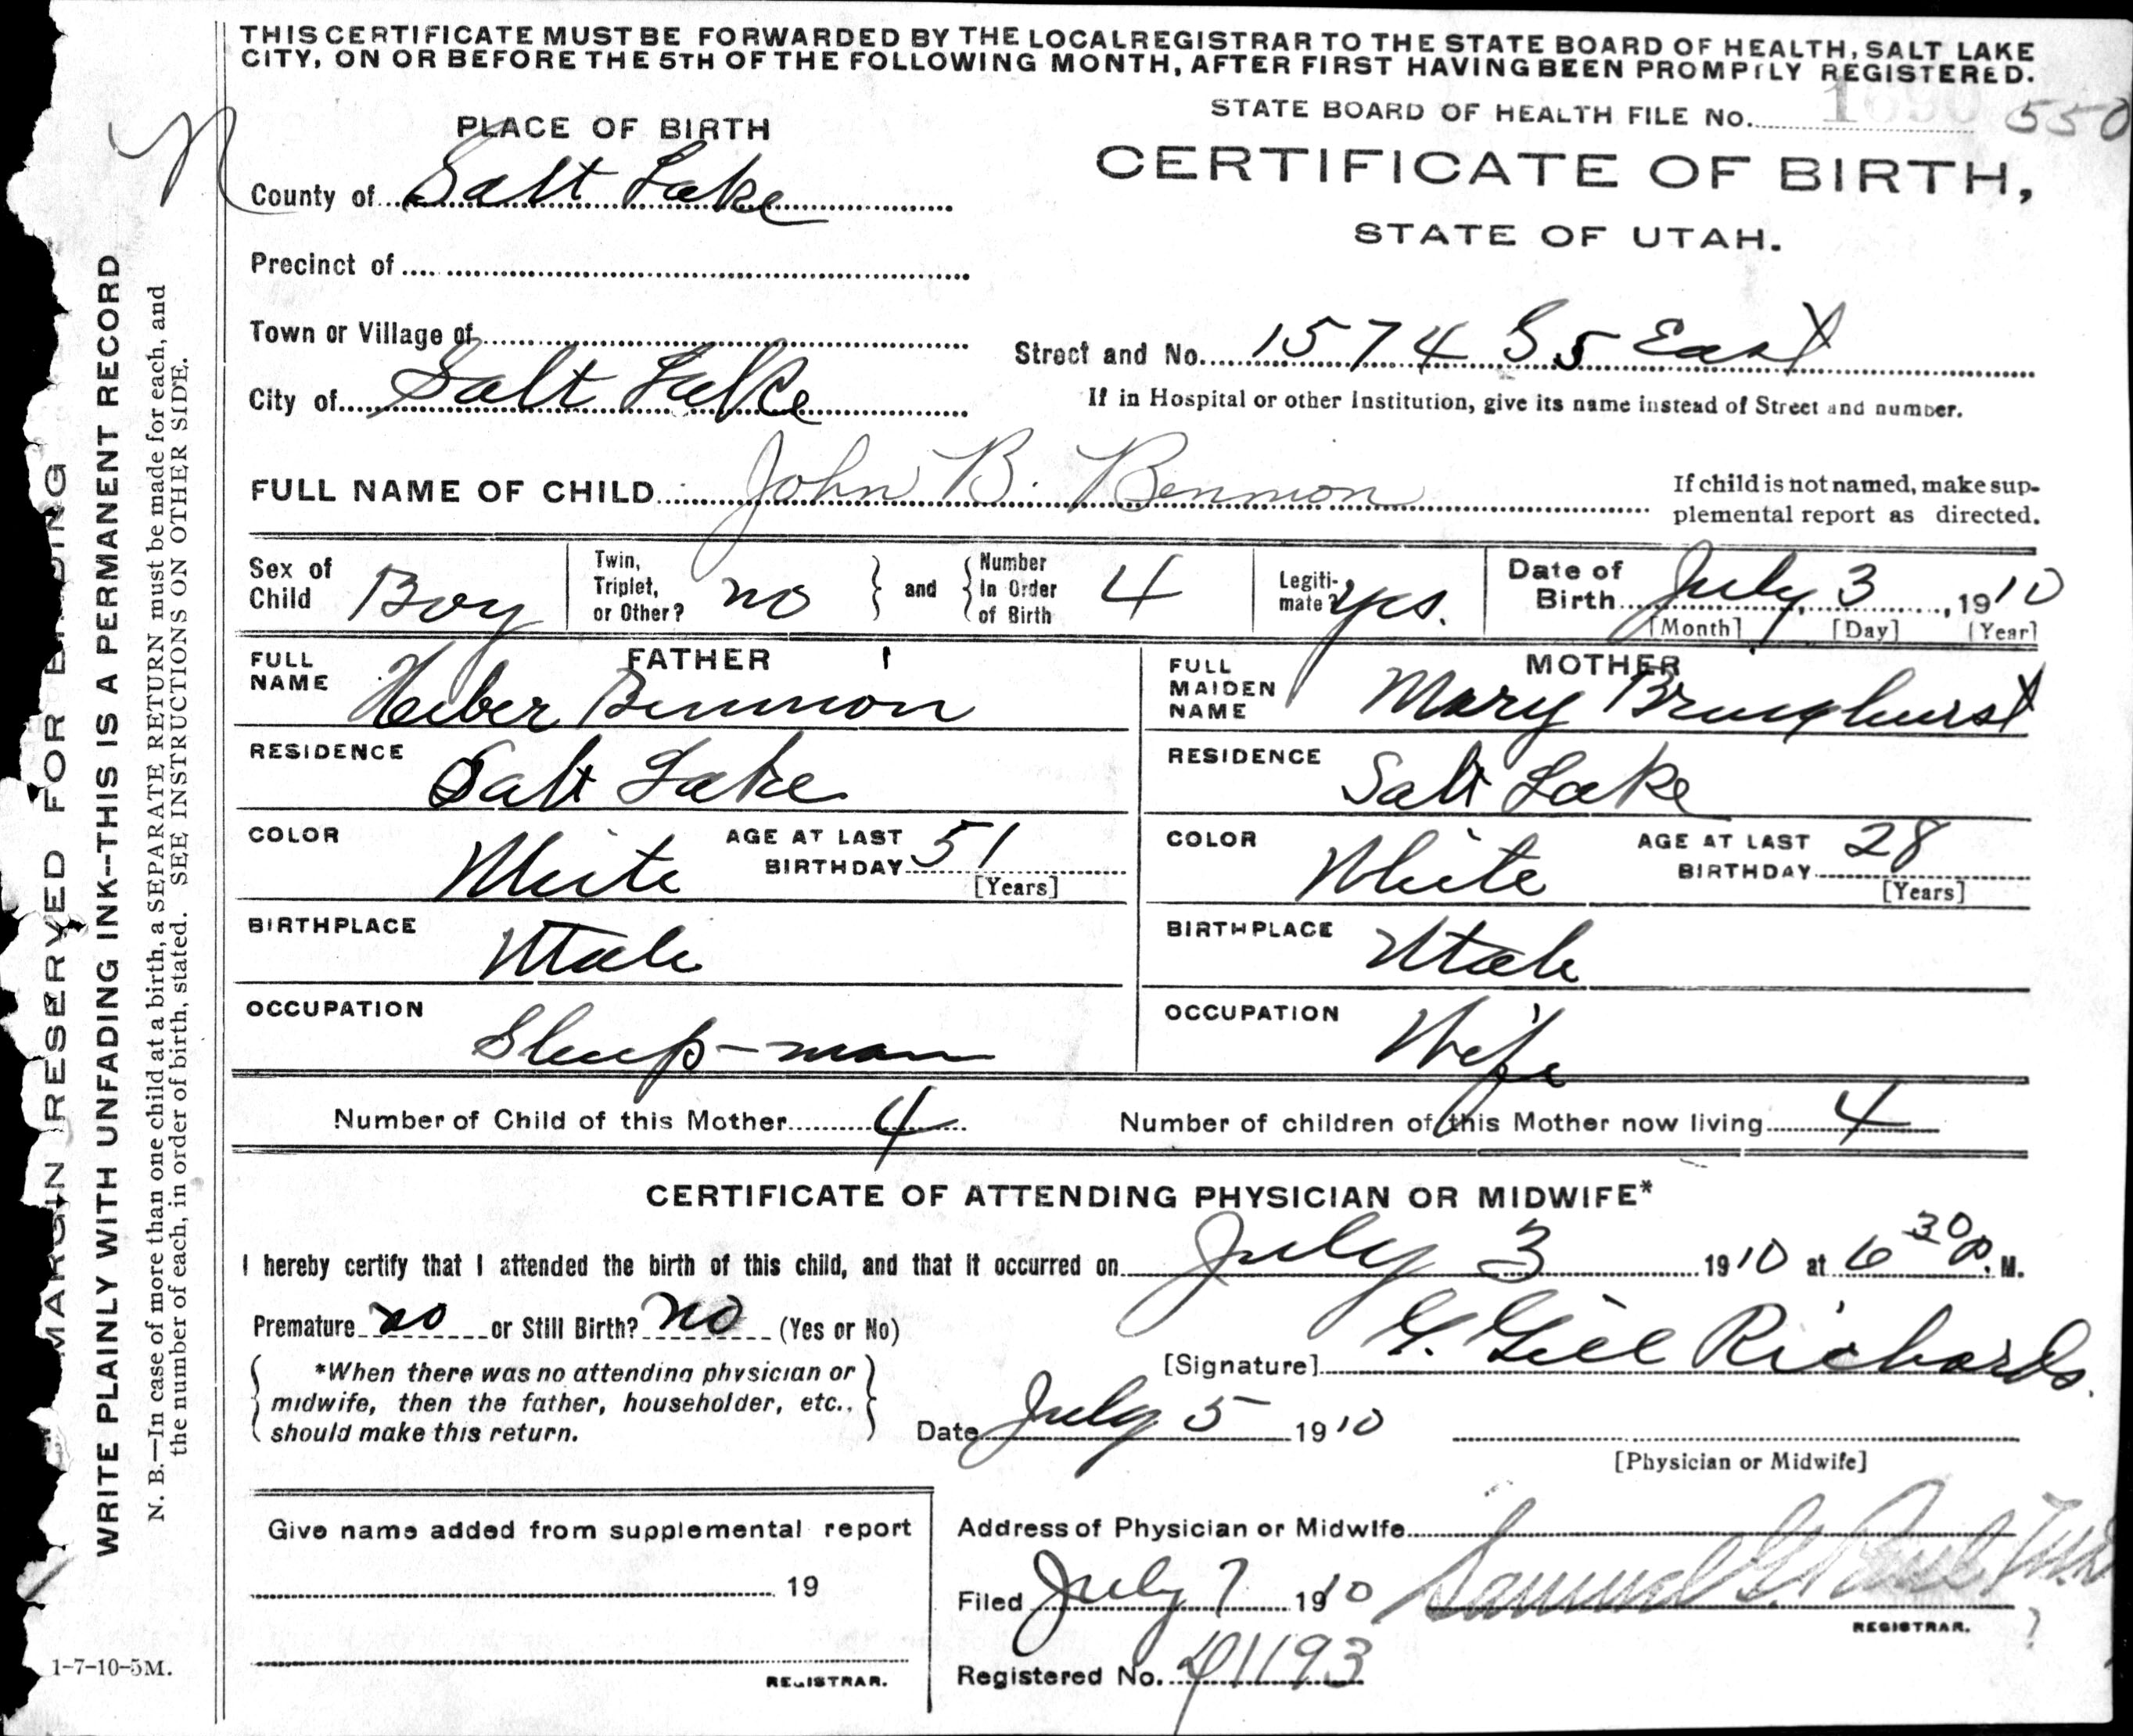 THIS CERTIFICATE MUST BE FORWARDED BY THE LOCAL REGISTRAR TO THE STATE BOARD OF HEALTH, SALT LAKE
CITY, ON OR BEFORE THE 5TH OF THE FOLLOWING MONTH, AFTER FIRST HAVING BEEN PROMPTLY REGISTERED.
STATE BOARD OF HEALTH FILE No. 1690 550
PLACE OF BIRTH
CERTIFICATE OF BIRTH,
STATE OF UTAH.
N
County of Salt Lake
Precinct of
Town or Village of
Street and No. 1574 S 5 East
City of Salt Lake
If in Hospital or other Institution, give its name instead of Street and number.
FULL NAME OF CHILD John B. Bennion
If child is not named, make sup-
plemental report as directed.
Sex of Child Boy
Twin, Triplet, or Other? no and Number In Order of Birth 4
Legiti-mate? yes.
Date of Birth July 3, 1910
[Month] [Day] [Year]
FATHER
FULL NAME Heber Bennion
RESIDENCE Salt Lake
COLOR White AGE AT LAST BIRTHDAY 51 [Years]
BIRTHPLACE Utah
OCCUPATION Sheep-man
MOTHER
FULL MAIDEN NAME Mary Bringhurst
RESIDENCE Salt Lake
COLOR White AGE AT LAST BIRTHDAY 28 [Years]
BIRTHPLACE Utah
OCCUPATION Wife
Number of Child of this Mother 4 Number of children of this Mother now living 4
CERTIFICATE OF ATTENDING PHYSICIAN OR MIDWIFE*
I hereby certify that I attended the birth of this child, and that it occurred on July 3 1910 at 6 30 P. M.
Premature no or Still Birth? no (Yes or No)
*When there was no attending physician or
midwife, then the father, householder, etc.,
should make this return.
[Signature] G. Gill Richards.
Date July 5 1910
[Physician or Midwife]
Give name added from supplemental report
19
REGISTRAR.
Address of Physician or Midwife
Filed July 7 1910 Samuel G. Paul
REGISTRAR. ?
Registered No. 1193
1-7-10-5M.
MARGIN RESERVED FOR BINDING
WRITE PLAINLY WITH UNFADING INK--THIS IS A PERMANENT RECORD
N. B.—In case of more than one child at a birth, a SEPARATE RETURN must be made for each, and
the number of each, in order of birth, stated. SEE INSTRUCTIONS ON OTHER SIDE.